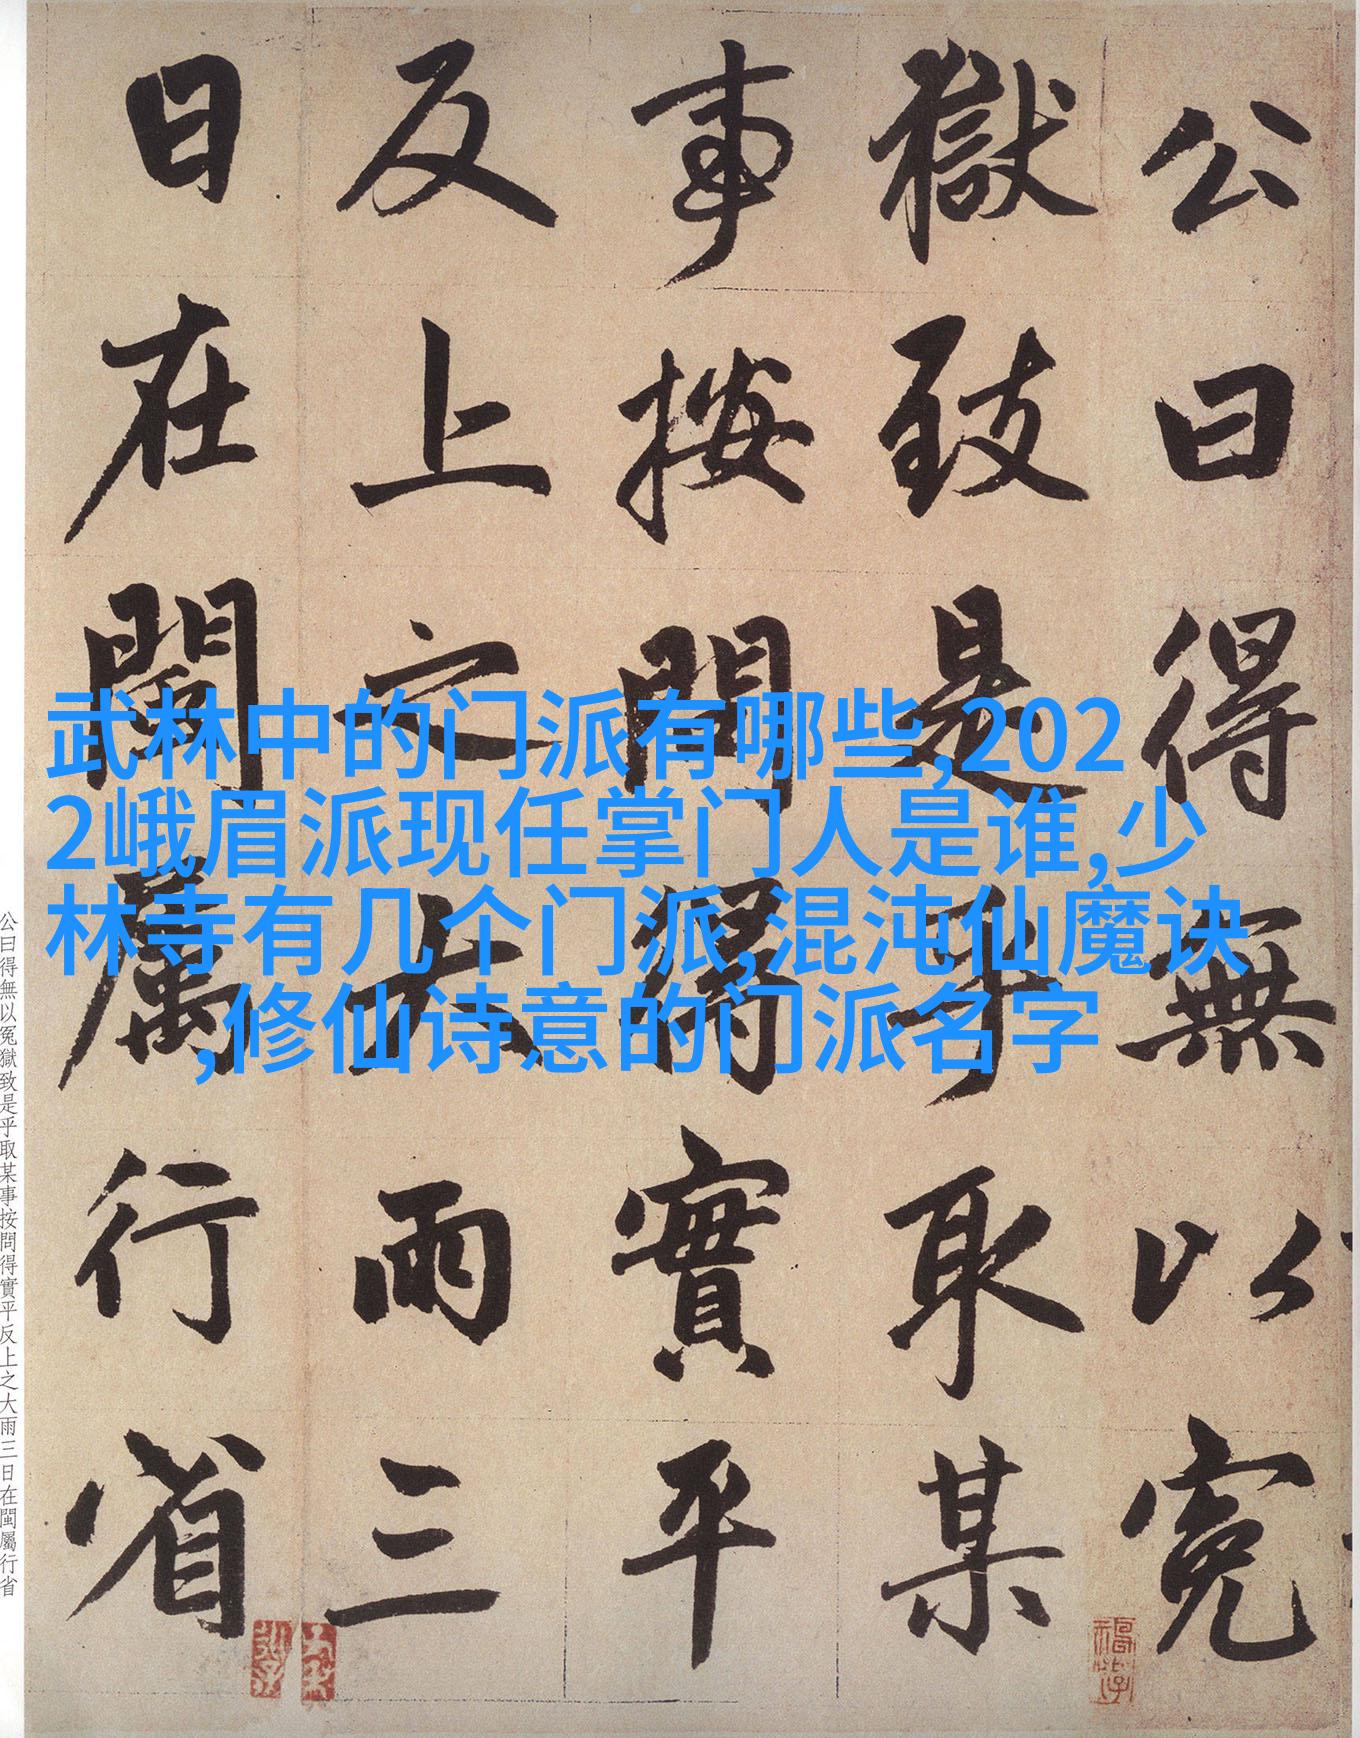 公曰得無以冤
獄致是乎取某
事按問得實平
反上之大雨三
日在閩屬行省
武林中的门派有哪些,202
2峨眉派现任掌门人是谁,少
林寺有几个门派,混沌仙魔诀
,修仙诗意的门派名字
公曰得無以冤獄致是乎取某事按問得實平反上之大雨三日在閩屬行省